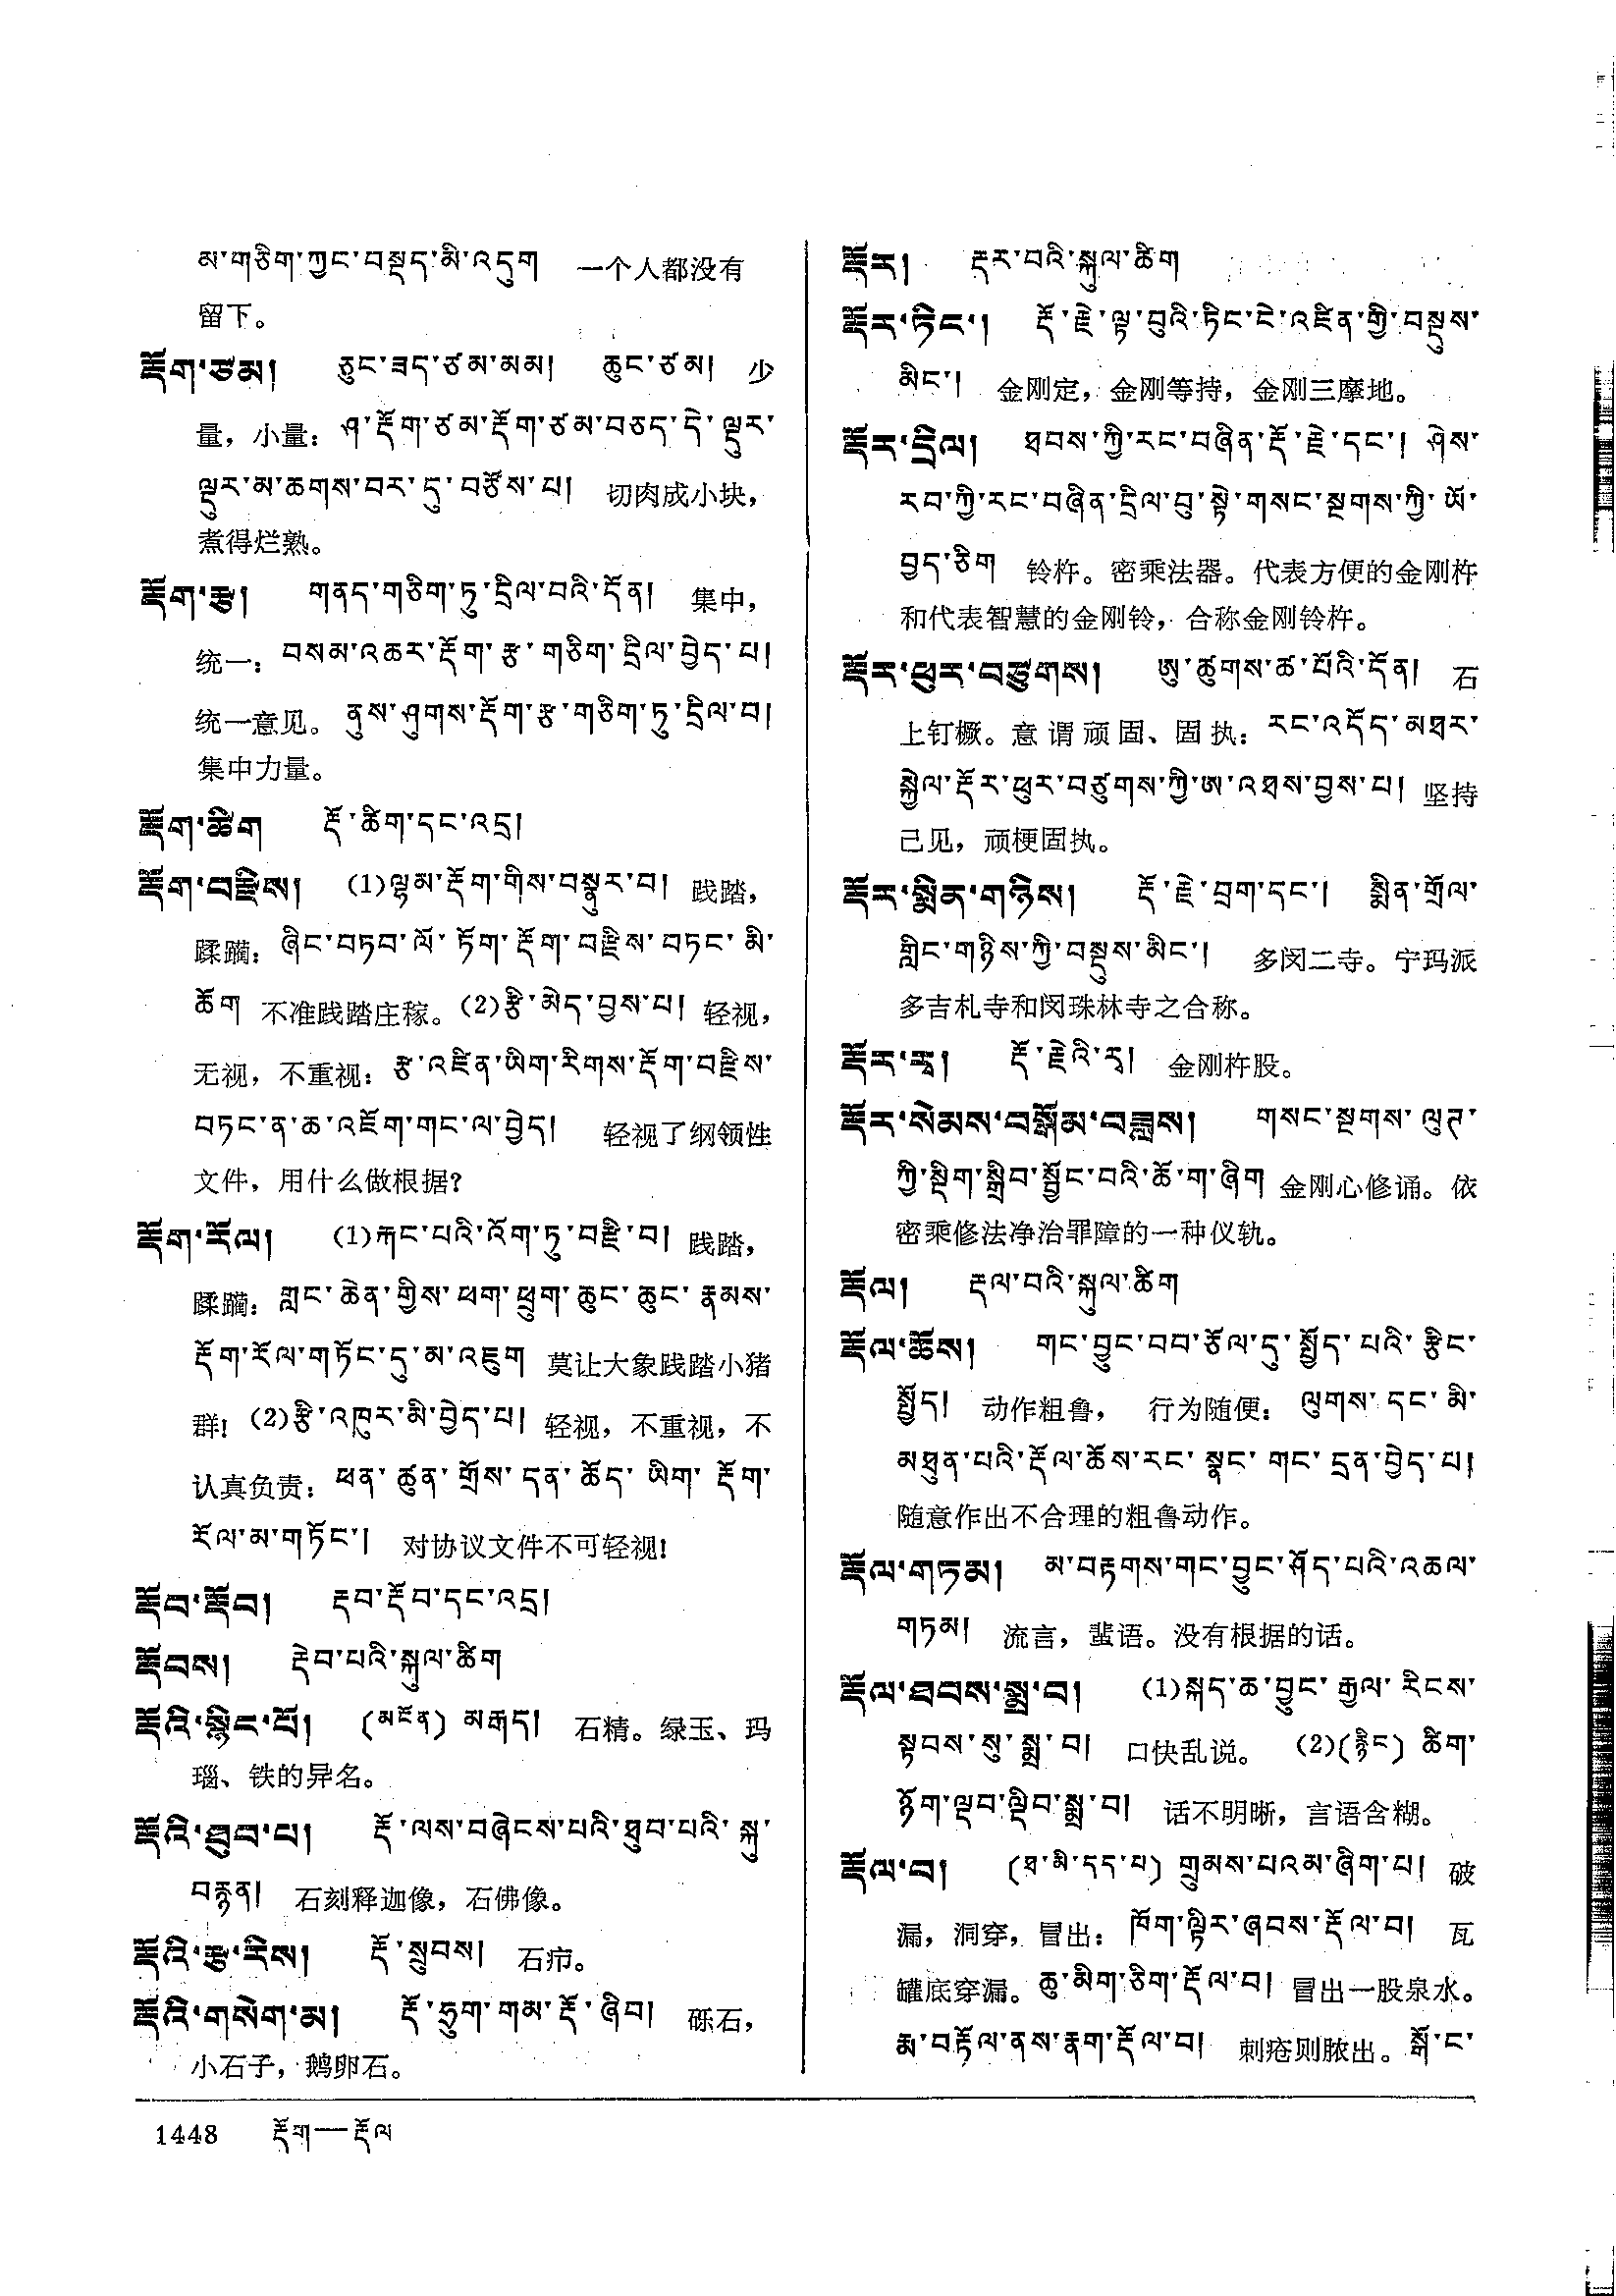 མ་གཅིག་ཀྱང་བསྡད་མི་འདུག 一个人都没有
留下。
རྡོག་ཙམ། ཅུང་ཟད་ཙམ་མམ། ཆུང་ཙམ། 少
量，小量：ཤ་རྡོག་ཙམ་རྡོག་ཙམ་བཅད་དེ་ལྡུར་
ལྡུར་མ་ཆགས་བར་དུ་བཙོས་པ། 切肉成小块，
煮得烂熟。
རྡོག་རྩ། གནད་གཅིག་ཏུ་དྲིལ་བའི་དོན། 集中，
统一：བསམ་འཆར་རྡོག་རྩ་གཅིག་དྲིལ་བྱེད་པ།
统一意见。ནུས་ཤུགས་རྡོག་རྩ་གཅིག་ཏུ་དྲིལ་བ།
集中力量。
རྡོག་ཚིག རྡོ་ཚིག་དང་འདྲ།
རྡོག་བརྫིས། (1)ལྷམ་རྡོག་གིས་བསྣུར་བ། 践踏，
蹂躏：ཞིང་བཏབ་ལོ་ཏོག་རྡོག་བརྫིས་བཏང་མི་
ཆོག 不准践踏庄稼。(2)རྩི་མེད་བྱས་པ། 轻视，
无视，不重视：རྩ་འཛིན་ཡིག་རིགས་རྡོག་བརྫིས་
བཏང་ན་ཆ་འཇོག་གང་ལ་བྱེད། 轻视了纲领性
文件，用什么做根据？
རྡོག་རོལ། (1)རྐང་པའི་འོག་ཏུ་བརྫི་བ། 践踏，
蹂躏：གླང་ཆེན་གྱིས་ཕག་ཕྲུག་ཆུང་ཆུང་རྣམས་
རྡོག་རོལ་གཏོང་དུ་མ་འཇུག 莫让大象践踏小猪
群！(2)རྩི་འཁུར་མི་བྱེད་པ། 轻视，不重视，不
认真负责：ཕན་ཚུན་གྲོས་དན་ཆོད་ཡིག་རྡོག་
རོལ་མ་གཏོང་། 对协议文件不可轻视！
རྡོབ་རྡོབ། རྡབ་རྡོབ་དང་འདྲ།
རྡོབས། རྡེབ་པའི་སྐུལ་ཚིག
རྡོའི་སྙིང་པོ། (མངོན) མརྒད། 石精。绿玉、玛
瑙、铁的异名。
རྡོའི་ཐུབ་པ། རྡོ་ལས་བཞེངས་པའི་ཐུབ་པའི་སྐུ་
བརྙན། 石刻释迦像，石佛像。
རྡོའི་རྩ་རིས། རྡོ་སྲུབས། 石疖。
རྡོའི་གསེག་མ། རྡོ་ཧྲུག་གམ་རྡོ་ཞིབ། 砾石，
小石子，鹅卵石。
1448 རྡོག—རྡོལ
རྡོར། རྡར་བའི་སྐུལ་ཚིག
རྡོར་ཏིང་། རྡོ་རྗེ་ལྟ་བུའི་ཏིང་ངེ་འཛིན་གྱི་བསྡུས་
མིང་། 金刚定，金刚等持，金刚三摩地。
རྡོར་དྲིལ། ཐབས་ཀྱི་རང་བཞིན་རྡོ་རྗེ་དང་། ཤེས་
རབ་ཀྱི་རང་བཞིན་དྲིལ་བུ་སྟེ་གསང་སྔགས་ཀྱི་ཡོ་
བྱད་ཅིག 铃杵。密乘法器。代表方便的金刚杵
和代表智慧的金刚铃，合称金刚铃杵。
རྡོར་ཕུར་བཙུགས། ཨུ་ཚུགས་ཚ་པོའི་དོན། 石
上钉橛。意谓顽固、固执：རང་འདོད་མཐར་
སྐྱེལ་རྡོར་ཕུར་བཙུགས་ཀྱི་ཨ་འཐས་བྱས་པ། 坚持
己见，顽梗固执。
རྡོར་སྨིན་གཉིས། རྡོ་རྗེ་བྲག་དང་། སྨིན་གྲོལ་
གླིང་གཉིས་ཀྱི་བསྡུས་མིང་། 多闵二寺。宁玛派
多吉札寺和闵珠林寺之合称。
རྡོར་རྭ། རྡོ་རྗེའི་རྭ། 金刚杵股。
རྡོར་སེམས་བསྒོམ་བཟླས། གསང་སྔགས་ལུཊ་
ཀྱི་སྡིག་སྒྲིབ་སྦྱོང་བའི་ཆོ་ག་ཞིག 金刚心修诵。依
密乘修法净治罪障的一种仪轨。
རྡོལ། རྡལ་བའི་སྐུལ་ཚིག
རྡོལ་ཆོས། གང་བྱུང་བབ་ཅོལ་དུ་སྤྱོད་པའི་རྩིང་
སྤྱོད། 动作粗鲁， 行为随便：ལུགས་དང་མི་
མཐུན་པའི་རྡོལ་ཆོས་རང་སྣང་གང་དྲན་བྱེད་པ།
随意作出不合理的粗鲁动作。
རྡོལ་གཏམ། མ་བརྟགས་གང་བྱུང་ཤོད་པའི་འཆལ་
གཏམ། 流言，蜚语。没有根据的话。
རྡོལ་ཐབས་སྨྲ་བ། (1)སྐད་ཆ་བྱུང་རྒྱལ་རིངས་
སྟབས་སུ་སྨྲ་བ། 口快乱说。 (2)(རྙིང) ཚིག་
ཉོག་ལྡབ་ལྡིབ་སྨྲ་བ། 话不明晰，言语含糊。
རྡོལ་བ། (ཐ་མི་དད་པ) གྲུམས་པའམ་ཞིག་པ། 破
漏，洞穿，冒出：ཁོག་ལྟིར་ཞབས་རྡོལ་བ། 瓦
罐底穿漏。ཆུ་མིག་ཅིག་རྡོལ་བ། 冒出一股泉水。
རྨ་བརྟོལ་ནས་རྣག་རྡོལ་བ། 刺疮则脓出。སྒོ་ང་